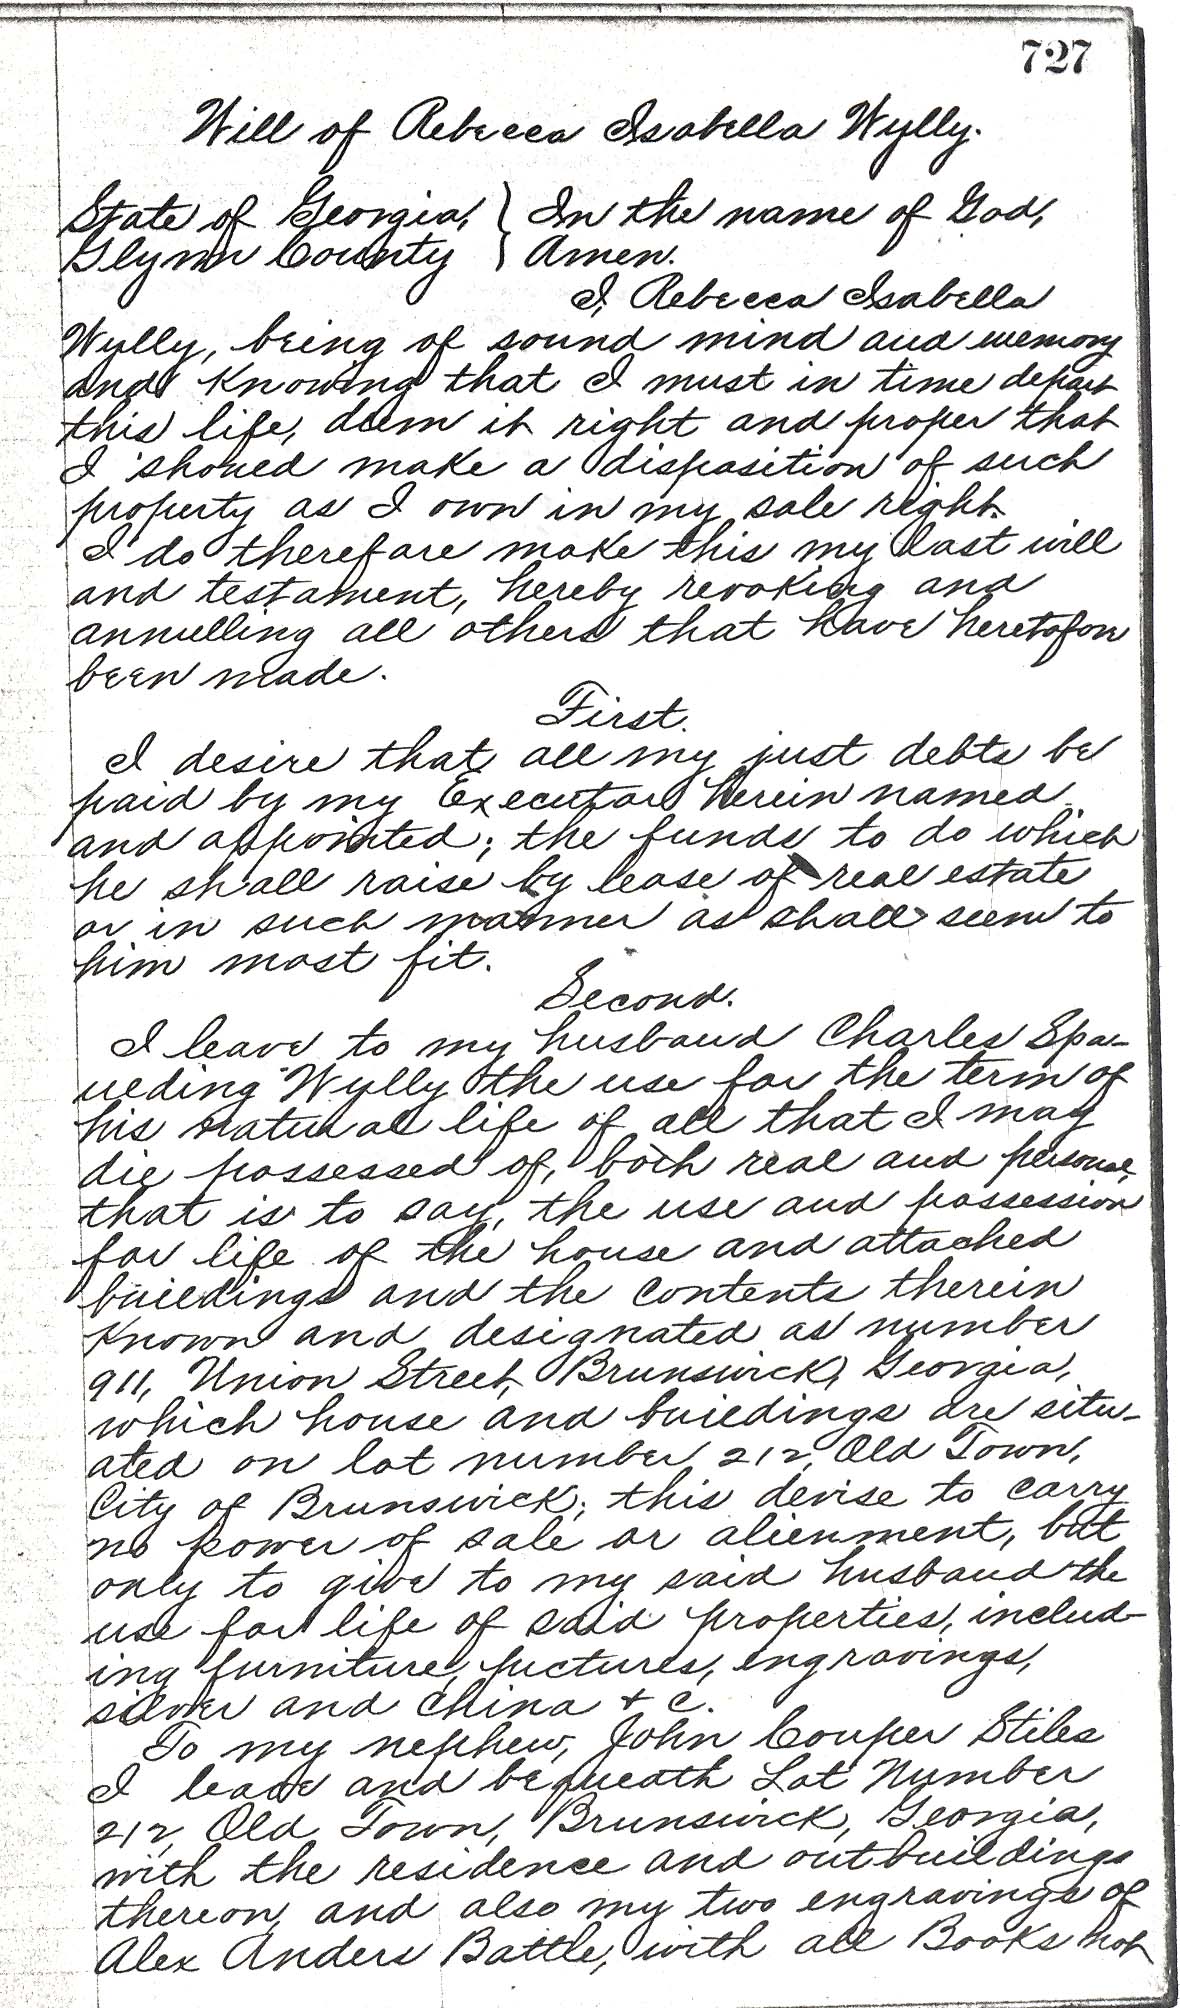 727
Will of Rebecca Isabella Wylly.
State of Georgia, } In the name of God,
Glynn County } Amen.
I, Rebecca Isabella
Wylly, being of sound mind and memory
and knowing that I must in time depart
this life, deem it right and proper that
I should make a disposition of such
property as I own in my sole right.
I do therefore make this my last will
and testament, hereby revoking and
annulling all others that have heretofore
been made.
First.
I desire that all my just debts be
paid by my Executor herein named
and appointed; the funds to do which
he shall raise by lease of real estate
or in such manner as shall seem to
him most fit.
Second.
I leave to my husband Charles Spa-
ulding Wylly the use for the term of
his natural life of all that I may
die possessed of, both real and personal,
that is to say, the use and possession
for life of the house and attached
buildings and the contents therein
known and designated as number
911, Union Street, Brunswick, Georgia,
which house and buildings are situ-
ated on lot number 212, Old Town,
City of Brunswick; this devise to carry
no power of sale or alienment, but
only to give to my said husband the
use for life of said properties, includ-
ing furniture, pictures, engravings,
silver and china & c.
To my nephew, John Couper Stiles
I leave and bequeath Lot Number
212, Old Town, Brunswick, Georgia,
with the residence and outbuildings
thereon, and also my two engravings of
Alex Anders Battle, with all Books not